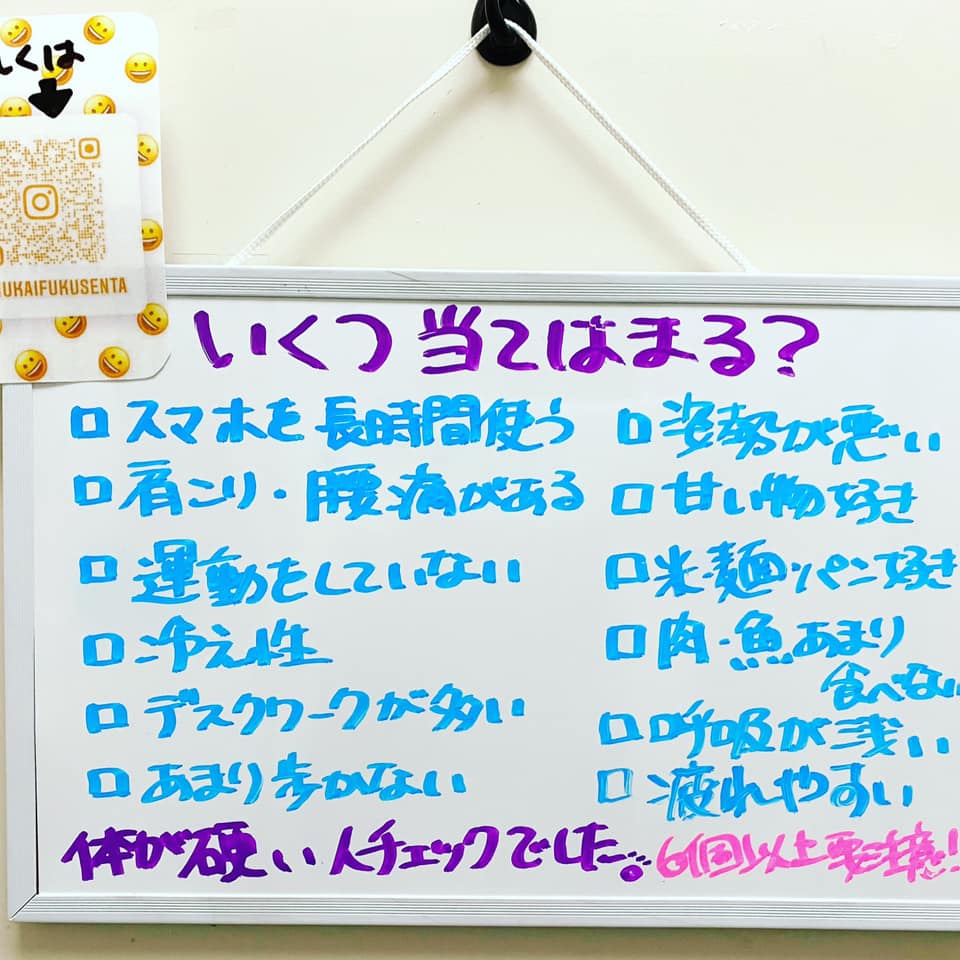 しくは
UKAIFUKUSENTA
いくつ当てはまる?
□ スマホを長時間使う
□ 肩こり・腰痛がある
□ 運動をしていない
□ 冷え性
□ デスクワークが多い
□ あまり歩かない
□ 姿勢が悪い
□ 甘い物好き
□ 米・麺・パン好き
□ 肉・魚あまり
食べない
□ 呼吸が浅い
□ 疲れやすい
体が硬い人チェックでした…。
6個以上要注意!